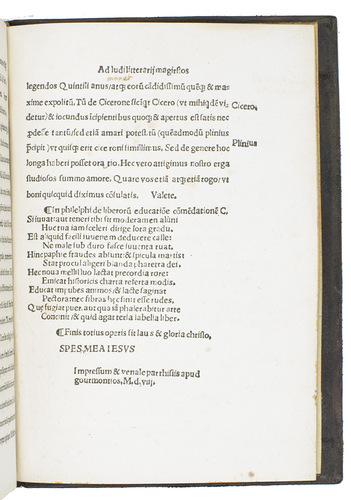 Ad ludi litterarij magistros
legendos Quintilianus/atq; eorū cādidissimū quēq; & ma-
xime expolitū. Tū de Cicerone sic: qr Cicero (vt mihi qdē vi-
Cicero,
detur/& iocundus icipientibus quoq; & apertus est satis nec
pdesse tantū/sed etiā amari potest. tū (quēadmodū plinius
Plinius
pcipit) vt quisq; erit ciceroni simillimus. Sed de genere hoc
longa haberi posset oratio. Hec vero attigimus nostro erga
studiosos summo amore. Quare vos etiā atq; etiā rogo/ vt
boni quicquid diximus cōsulatis. Valete.
¶ In philelphi de liberorū educatiōe cōmēdationē C.
Si iuuat aut teneri tibi sit moderamen alūni
Huc tua iam sceleri dirige lora gradu.
Est aliquid facili iuuenem deducere callet
Ne male sub duro fasce iuuenta ruat.
Hinc paphie fraudes abiunt & spicula martis
Stat procul aligeri blanda pharetra dei.
Hec noua mellifluo lactat precordia rore
Emicat historicis charta referta modis.
Educat impubes animos/& lacte saginat
Pectora: nec fibras hec sinit esse rudes.
Que fugiat puer aut qua sit phalerabitur arte
Continit/& quid agat teria labellā liber.
¶ Finis totius operis sit laus & gloria christo,
SPES, MEA IESVS
Impressum & venale parrhisiis apud
gourmontios, M. d, viij.